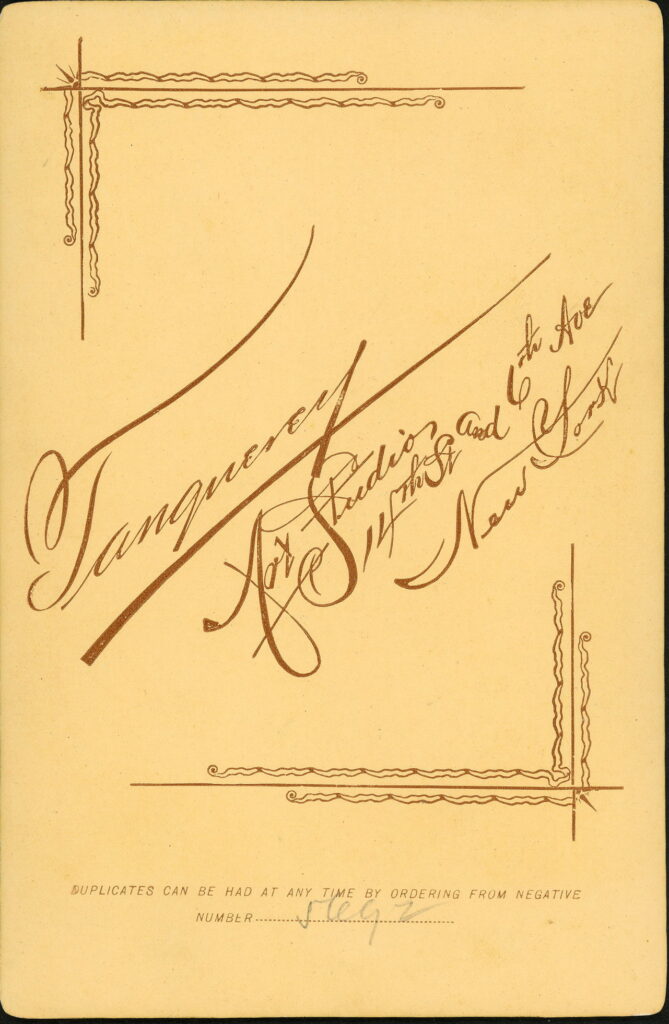 Tanquerey
Art Studios
14th St and 6th Ave
New York
DUPLICATES CAN BE HAD AT ANY TIME BY ORDERING FROM NEGATIVE
NUMBER